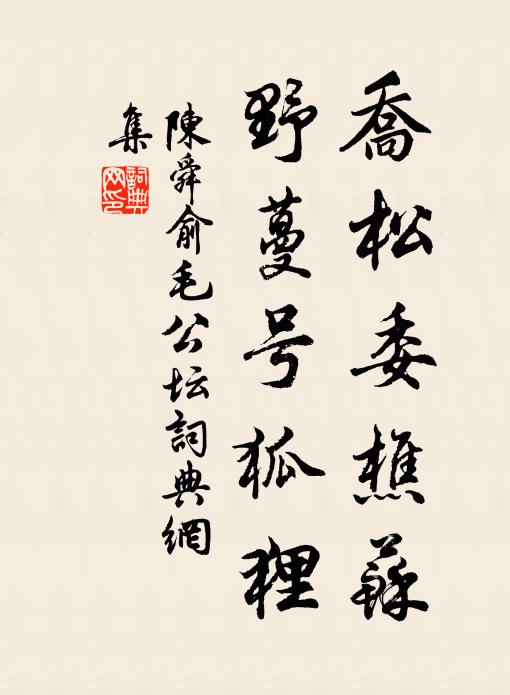 喬松委樵蘇
野蔓号狐狸
陳舜俞毛公坛詞典網
集
詞典网印